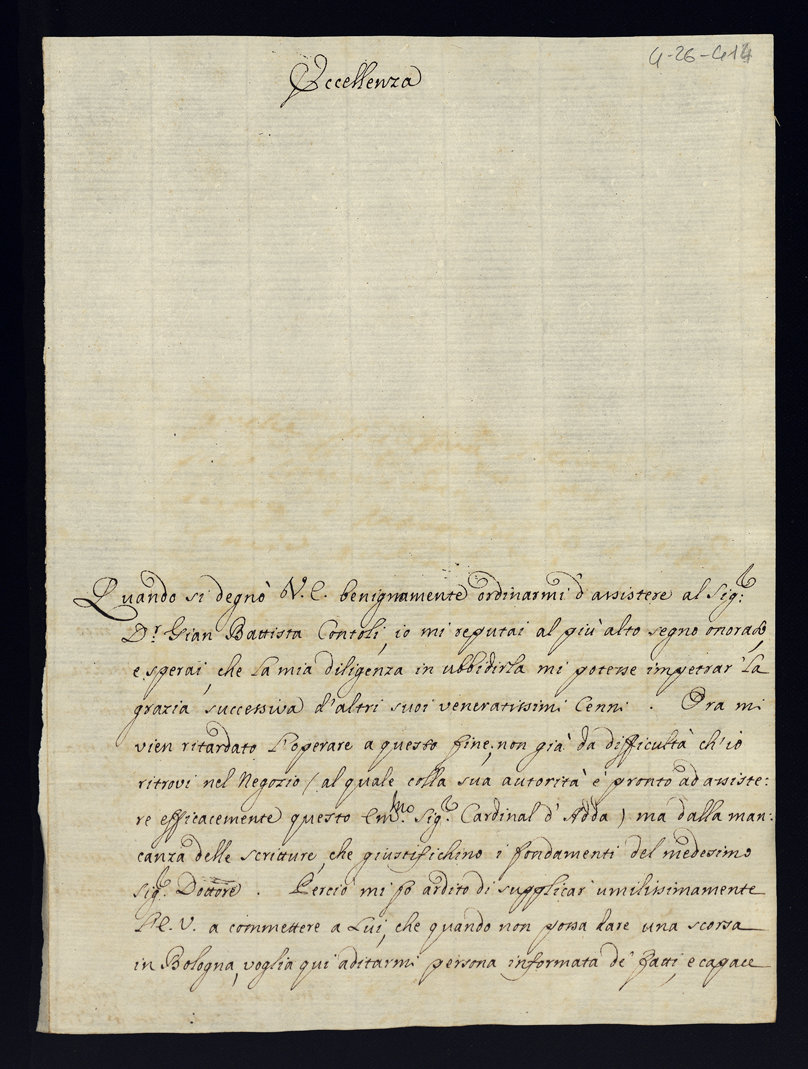 4-26-414
Eccellenza
Quando si degnò V. E. benignamente ordinarmi d'assistere al Sig.r
D.r Gian Battista Contoli, io mi reputai al più alto segno onorato,
e sperai, che la mia diligenza in ubbidirla mi potesse impetrar la
grazia successiva d'altri suoi veneratissimi Cenni. Ora mi
vien ritardato l'operare a questo fine, non già da difficultà ch'io
ritrovi nel Negozio (al quale colla sua autorità è pronto ad assiste:
re efficacemente questo Em.mo Sig.r Cardinal d'Adda) ma dalla man:
canza delle scritture, che giustifichino i fondamenti del medesimo
Sig.r Dottore. Perciò mi fo ardito di supplicar umilissimamente
l'E. V. a commettere a Lui, che quando non possa dare una scorsa
in Bologna, voglia qui aditarmi persona informata de' fatti, e capace